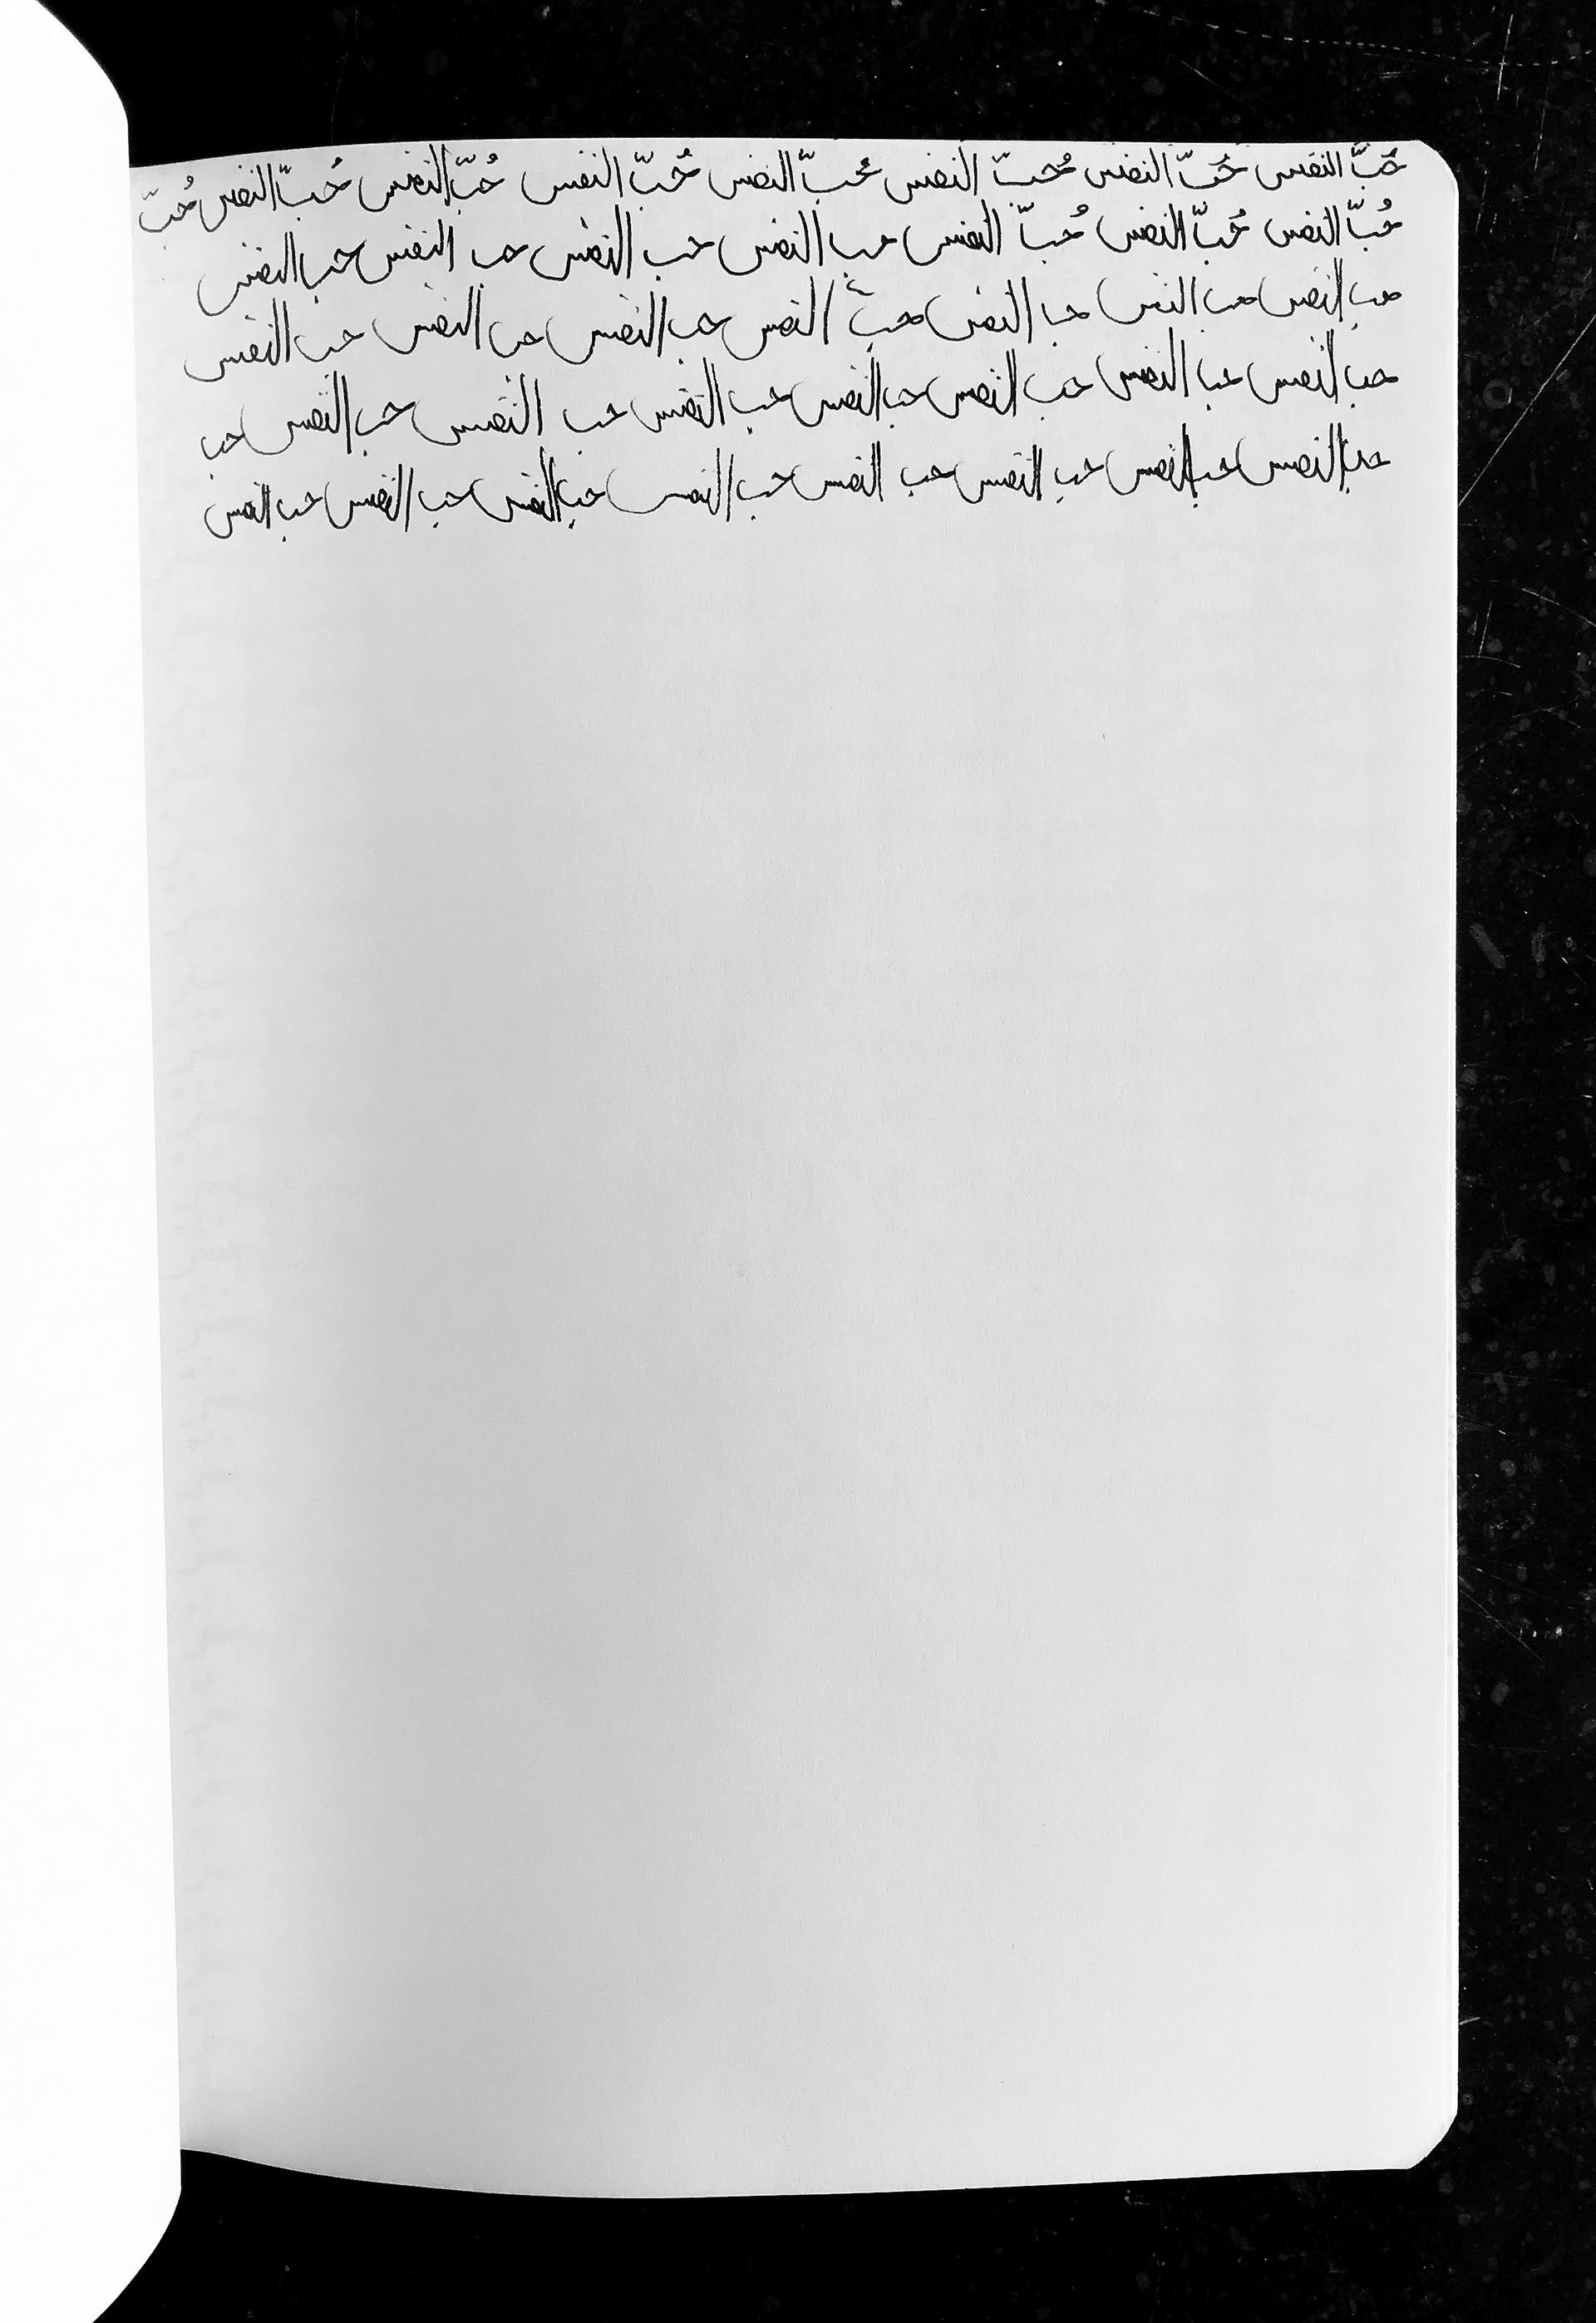 حُبّ النفس حُبّ النفس حُبّ النفس حُبّ النفس حُبّ النفس حُبّ النفس حُبّ النفس حُبّ
حُبّ النفس حُبّ النفس حُبّ النفس حب النفس حب النفس حب النفس حب النفس
حب النفس حب النفس حب النفس حبّ النفس حب النفس حب النفس حب النفس
حب النفس حب النفس حب النفس حب النفس حب النفس حب النفس حب النفس حب
حب النفس حب النفس حب النفس حب النفس حب النفس حب النفس حب النفس حب النفس